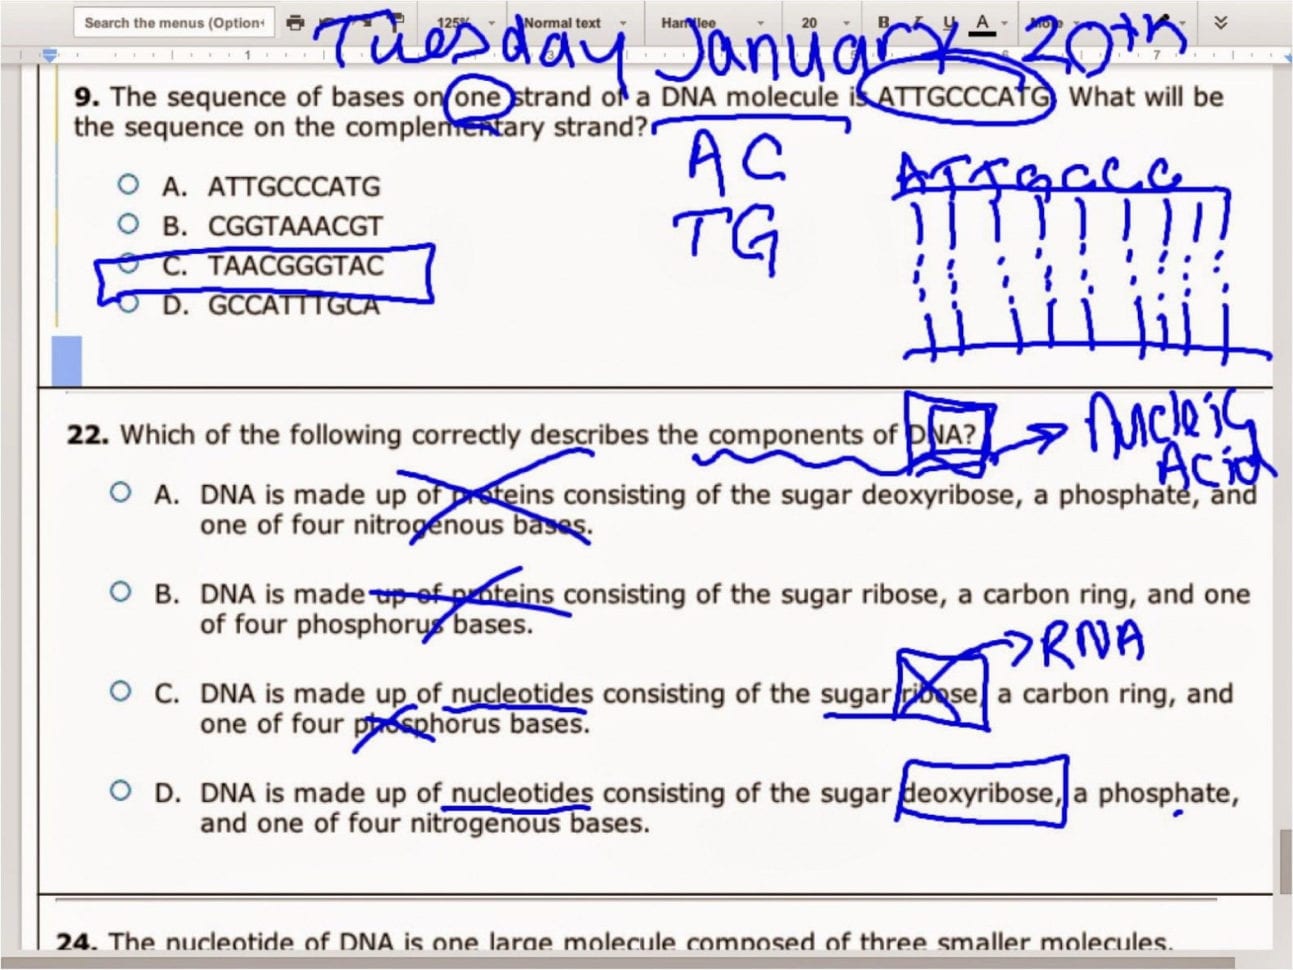 Search the menus (Option+
125%
Normal text
Handlee
20
B
U
A
More
Tuesday January 20th
1
6
7
9. The sequence of bases on one strand of a DNA molecule is ATTGCCCATG. What will be
the sequence on the complementary strand?
A C
T G
ATTGCCC
A. ATTGCCCATG
B. CGGTAAACGT
C. TAACGGGTAC
D. GCCATTTGCA
22. Which of the following correctly describes the components of DNA?
Nucleic
Acid
A. DNA is made up of proteins consisting of the sugar deoxyribose, a phosphate, and
one of four nitrogenous bases.
B. DNA is made up of proteins consisting of the sugar ribose, a carbon ring, and one
of four phosphorus bases.
RNA
C. DNA is made up of nucleotides consisting of the sugar ribose, a carbon ring, and
one of four phosphorus bases.
D. DNA is made up of nucleotides consisting of the sugar deoxyribose, a phosphate,
and one of four nitrogenous bases.
24. The nucleotide of DNA is one large molecule composed of three smaller molecules.